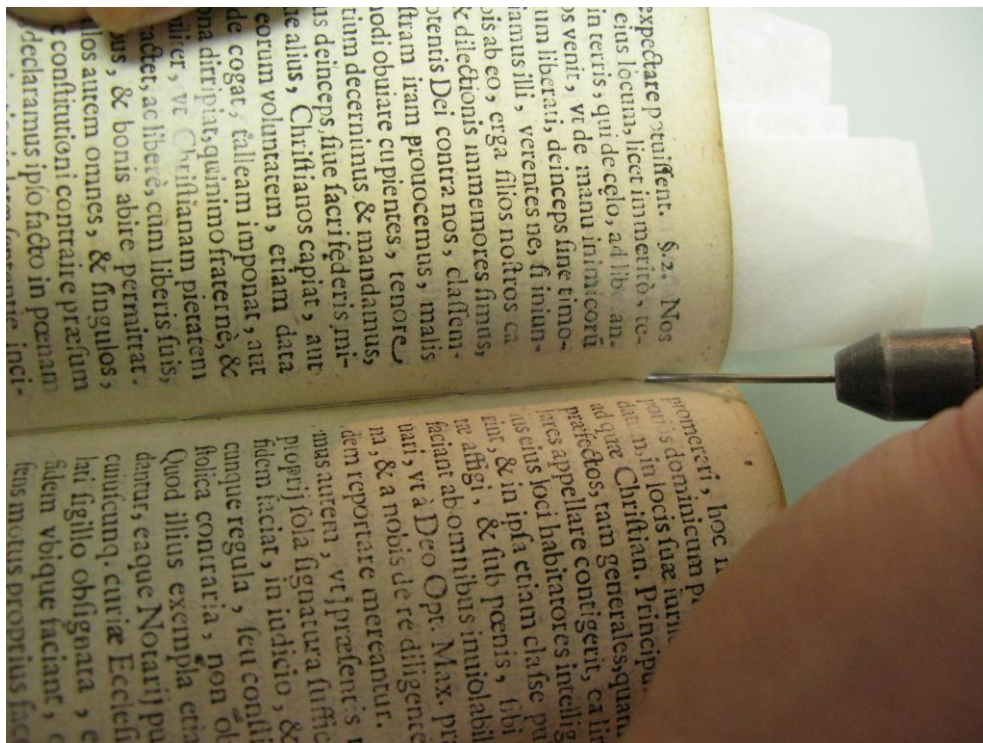 expectare potuiſſent. §.2. Nos
eius locum, licet immeritò, te-
in terris, qui de cęlo, ad liberan.
os venit, vt de manu inimicorũ
um liberati, deinceps ſine timo-
iamus illi, verentes ne, ſi iniun-
bis ab eo, erga filios noſtros ca
& dilectionis immemores ſimus,
otentis Dei contra nos, claſſem-
ſtram iram prouocemus, malis
modi obuiare cupientes, tenore
tium decernimus & mandamus,
us deinceps, ſiue ſacri fęderis mi-
ne alius, Chriſtianos capiat, aut
eorum voluntatem, etiam data
de cogat, talleam imponat, aut
ona dirripiat, quinimo fraternè, &
biliter, vt Chriſtianam pietatem
ractet, ac liberè, cum liberis ſuis,
bus, & bonis abire permittat.
los autem omnes, & ſingulos,
c conſtitutioni contraire præſum
declaramus ipſo facto in pœnam
inci-
promereri, hoc
dominicum
in locis ſuæ
ad quæ Chriſtian. Princip
præfectos, tam generales, quam
lares appellare contigerit, ea
us eius loci habitatores intellig
rint, & in ipſa etiam claſſe pu
ræ affigi, & ſub pœnis, ſibi
faciant ab omnibus inuiolabil
uari, vt à Deo Opt. Max. præ
na, & a nobis de re diligenc
dem reportare mereantur.
mus autem, vt præſentis
proprij ſola ſignatura ſuffic
fidem faciat, in iudicio, &
cunque regula, ſeu conſti
ſtolica contraria, non ob
Quod illius exempla etia
dantur, eaque Notarij pu
cuiuſcunq. curiæ Eccleſi
lati ſigillo obſignata, e
fidem vbique faciant,
ſens motus proprius face